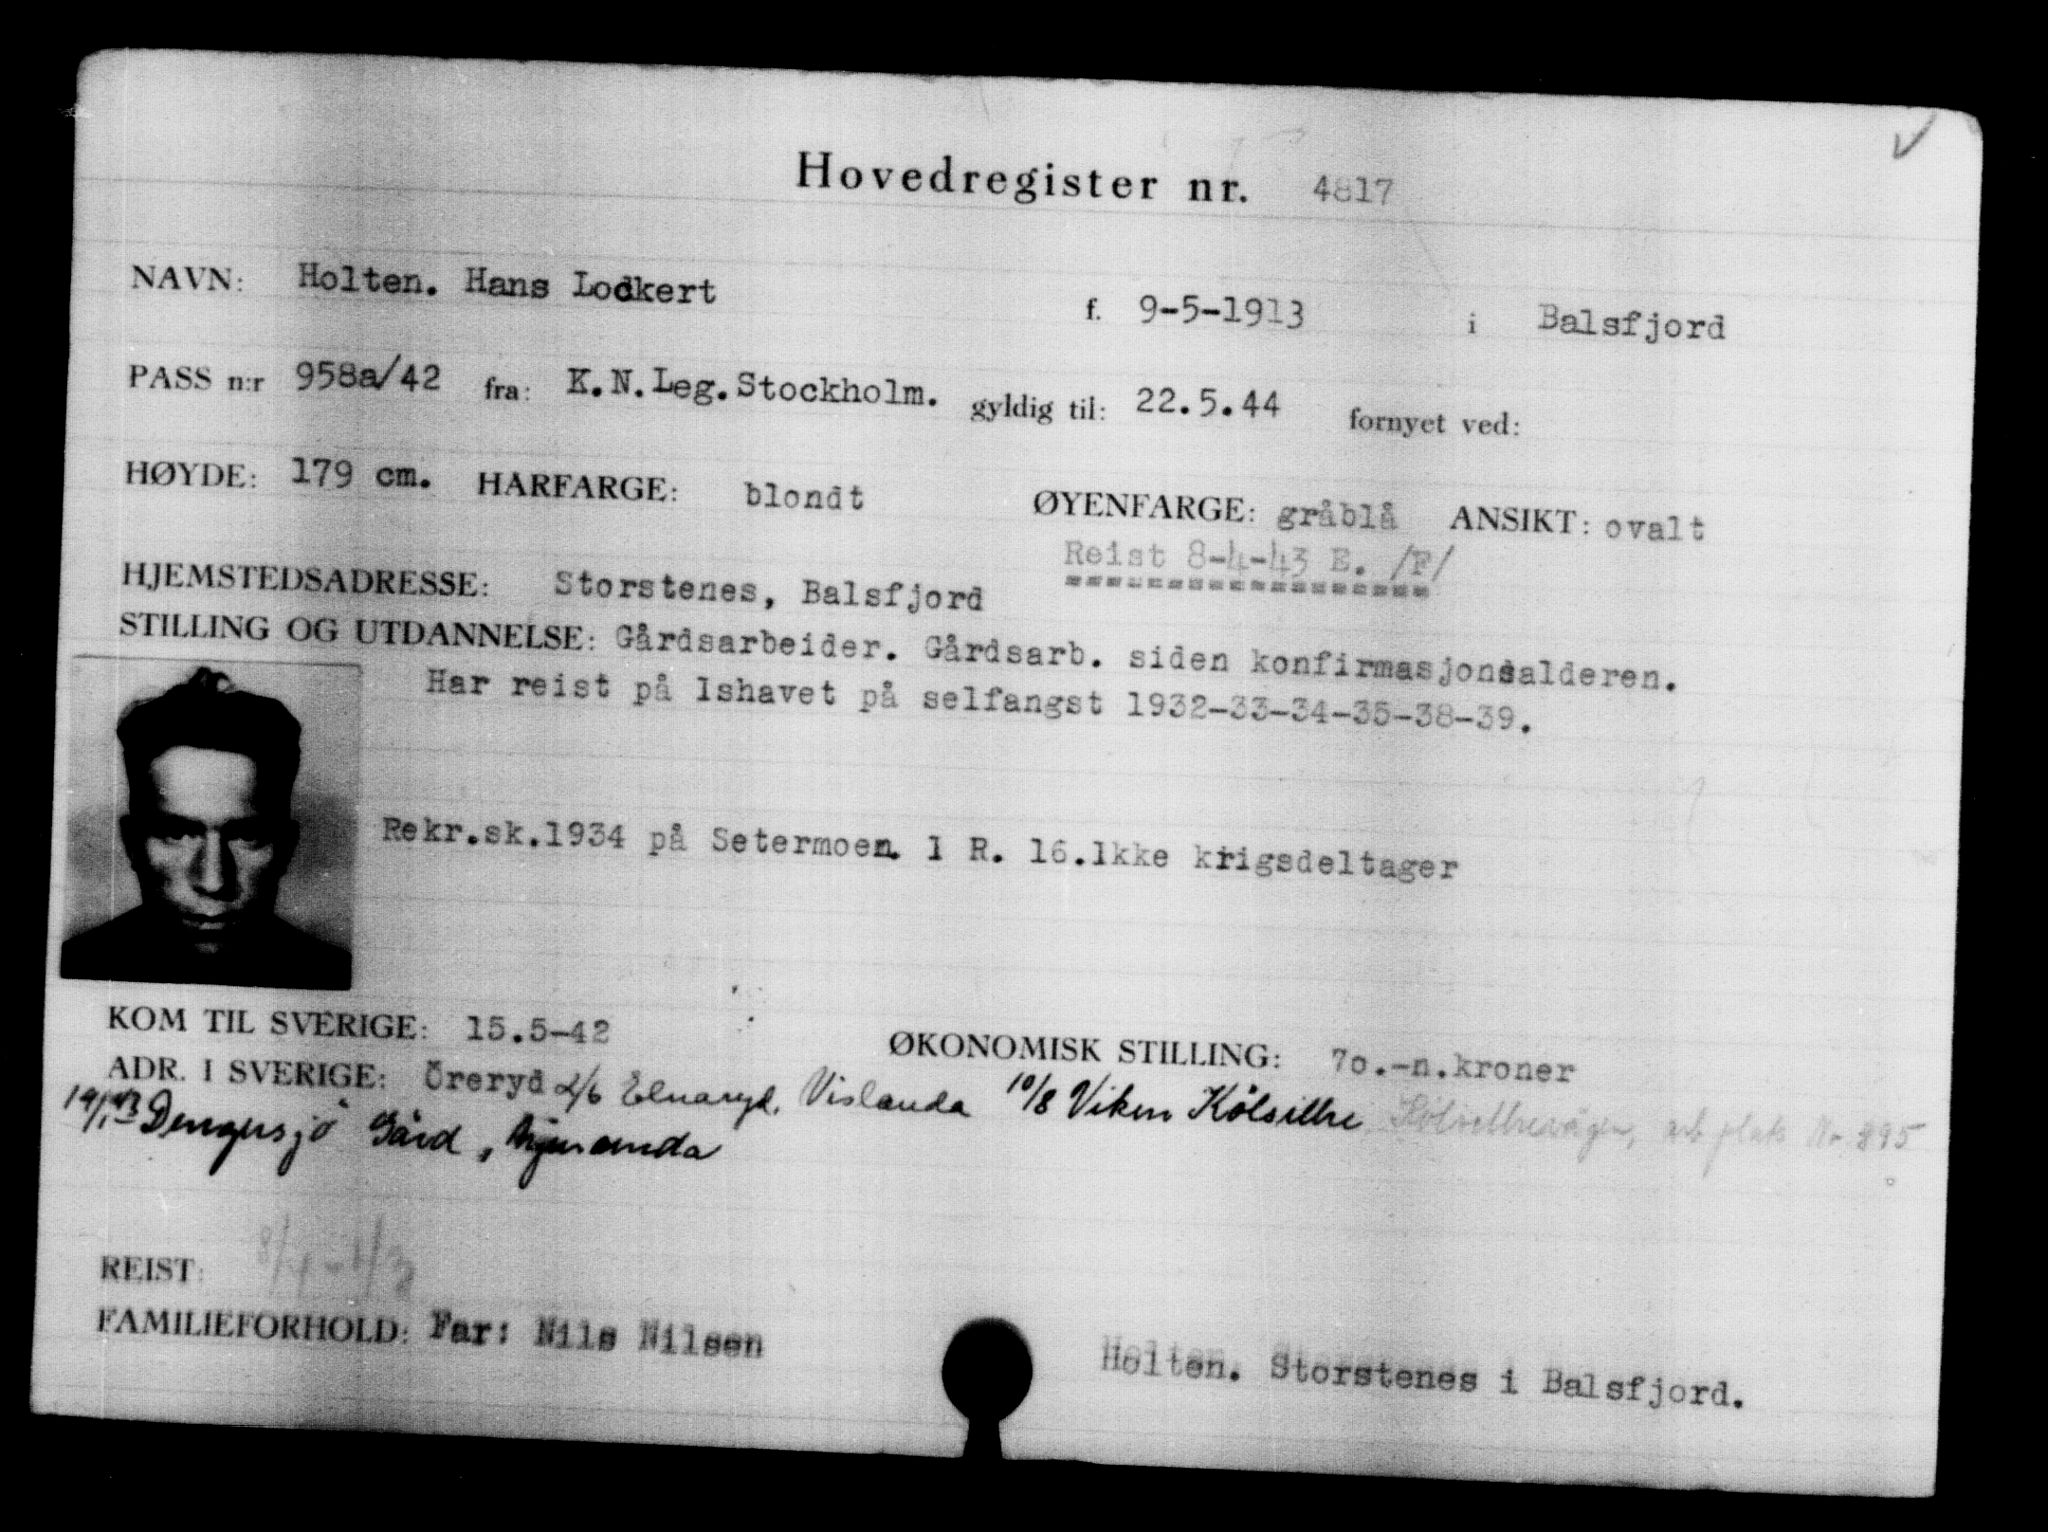 Hovedregister nr. 4817
NAVN: Holten. Hans Lockert f. 9-5-1913 i Balsfjord
PASS n:r 958a/42 fra: K.N.Leg.Stockholm. gyldig til: 22.5.44 fornyet ved:
HØYDE: 179 cm. HÅRFARGE: blondt ØYENFARGE: gråblå ANSIKT: ovalt
Reist 8-4-43 E. /F/
HJEMSTEDSADRESSE: Storstenes, Balsfjord
STILLING OG UTDANNELSE: Gårdsarbeider. Gårdsarb. siden konfirmasjonsalderen.
Har reist på Ishavet på selfangst 1932-33-34-35-38-39.
Rekr.sk.1934 på Setermoen. I R. 16.Ikke krigsdeltager
KOM TIL SVERIGE: 15.5-42 ØKONOMISK STILLING: 7o.-n.kroner
ADR. I SVERIGE: Öreryd 2/6 Elnaryd, Vislanda 10/8 Viken Kölsillre, Kölsillrevägen, arb plats Nr. 895
19/1 43 Dengersjö Gård, Njurunda
REIST: 8/4-43
FAMILIEFORHOLD: Far: Nils Nilsen Holten. Storstenes i Balsfjord.